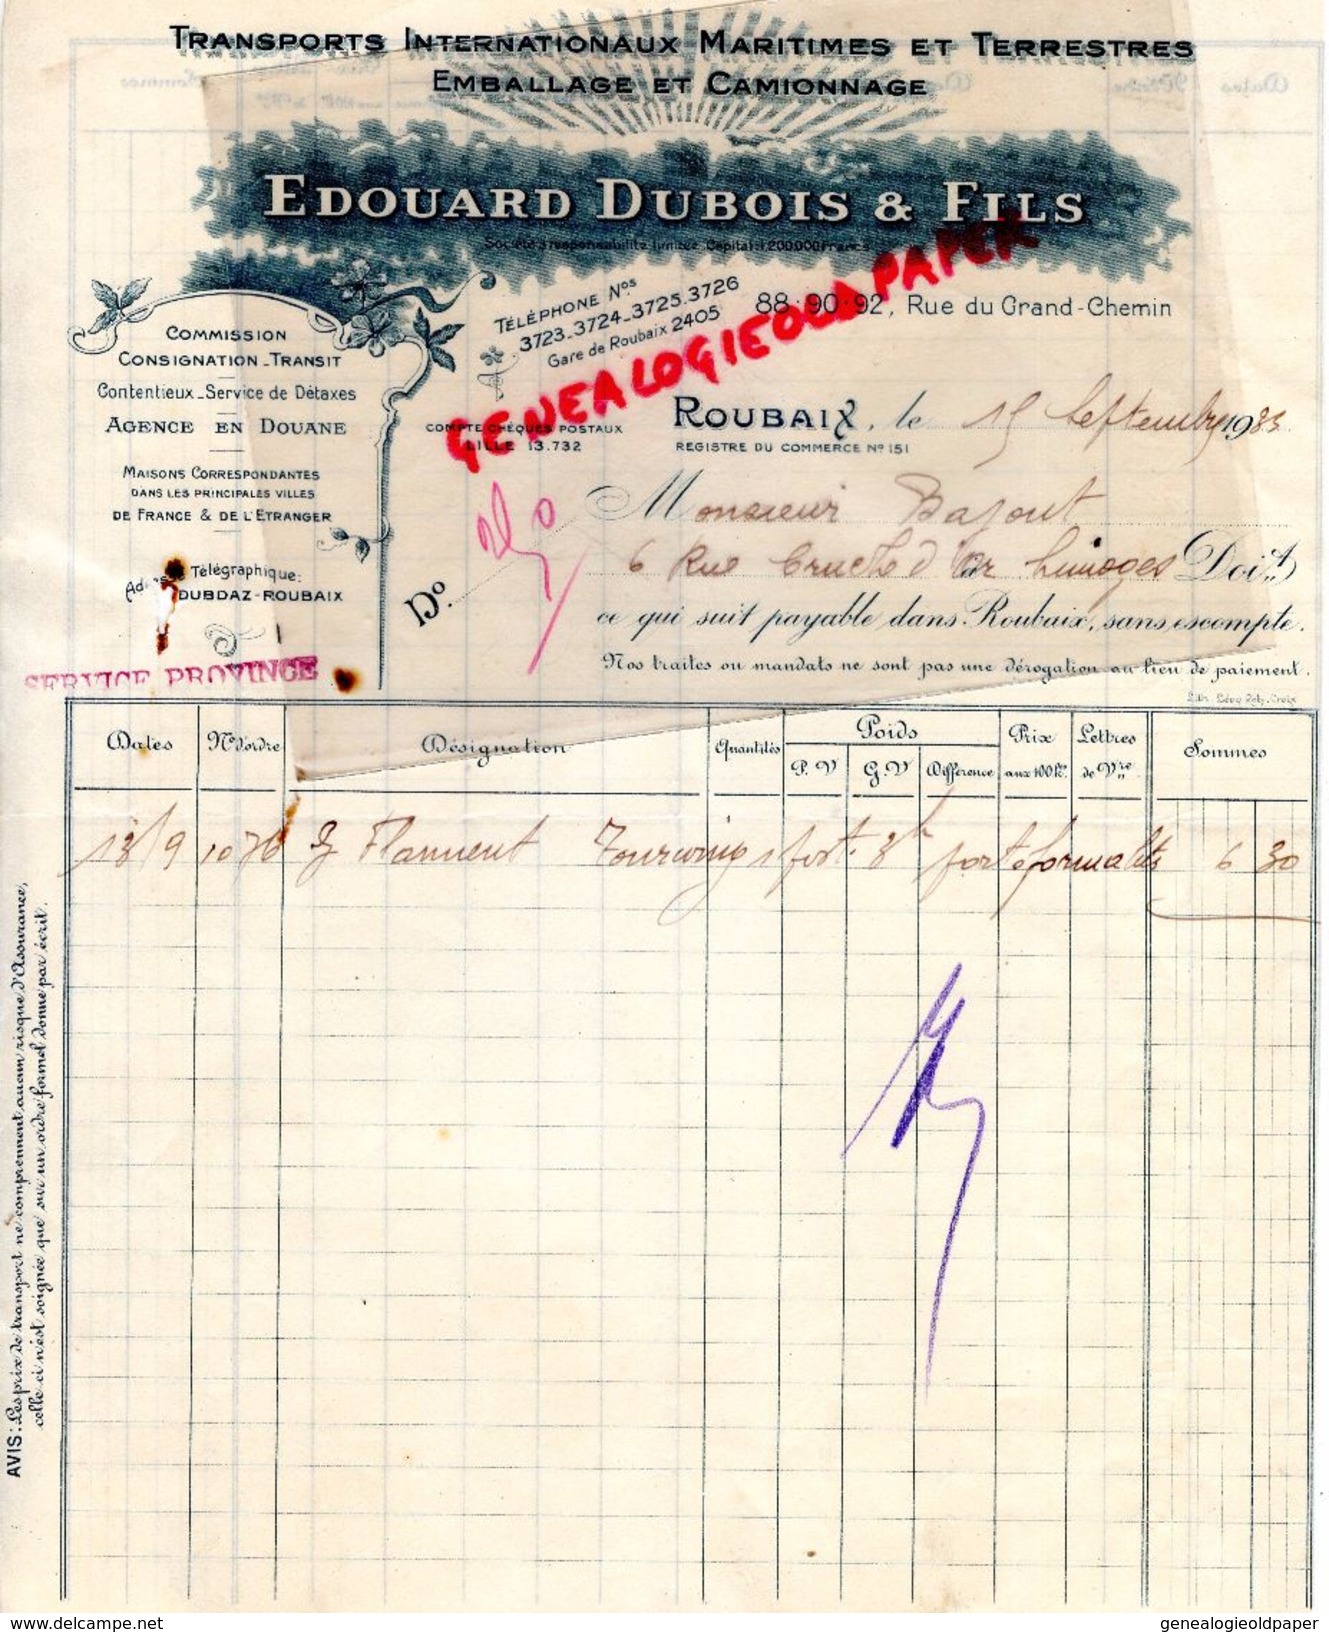 TRANSPORTS INTERNATIONAUX MARITIMES ET TERRESTRES
EMBALLAGE ET CAMIONNAGE
EDOUARD DUBOIS & FILS
Société à responsabilité limitée. Capital: 1.200.000 Francs
TÉLÉPHONE Nos
3723_3724_3725_3726
Gare de Roubaix 2405
88-90-92, Rue du Grand-Chemin
GENEALOGIEOLDPAPER
COMMISSION
CONSIGNATION_TRANSIT
Contentieux_Service de Détaxes
AGENCE EN DOUANE
MAISONS CORRESPONDANTES
DANS LES PRINCIPALES VILLES
DE FRANCE & DE L'ETRANGER
Adresse Télégraphique:
DUBDAZ-ROUBAIX
SERVICE PROVINCE
COMPTE CHÈQUES POSTAUX
LILLE 13.732
ROUBAIX, le 15 Septembre 1933
REGISTRE DU COMMERCE No 151
Monsieur Bajout
6 Rue Cruche d'or Limoges Doit
No.
ce qui suit payable dans Roubaix, sans escompte.
Nos traites ou mandats ne sont pas une dérogation au lieu de paiement.
Dates No d'ordre Désignation Quantités Poids Prix aux 100 K. Lettres de Vre Sommes
P.V G.V Différence
13/9 1076 Flament Tourcoing 1 port formalités 6 30
AVIS: Les prix de transport ne comprennent aucun risque d'Assurance,
celle ci n'est soignée que sur un ordre formel donné par écrit.
www.delcampe.net
genealogieoldpaper